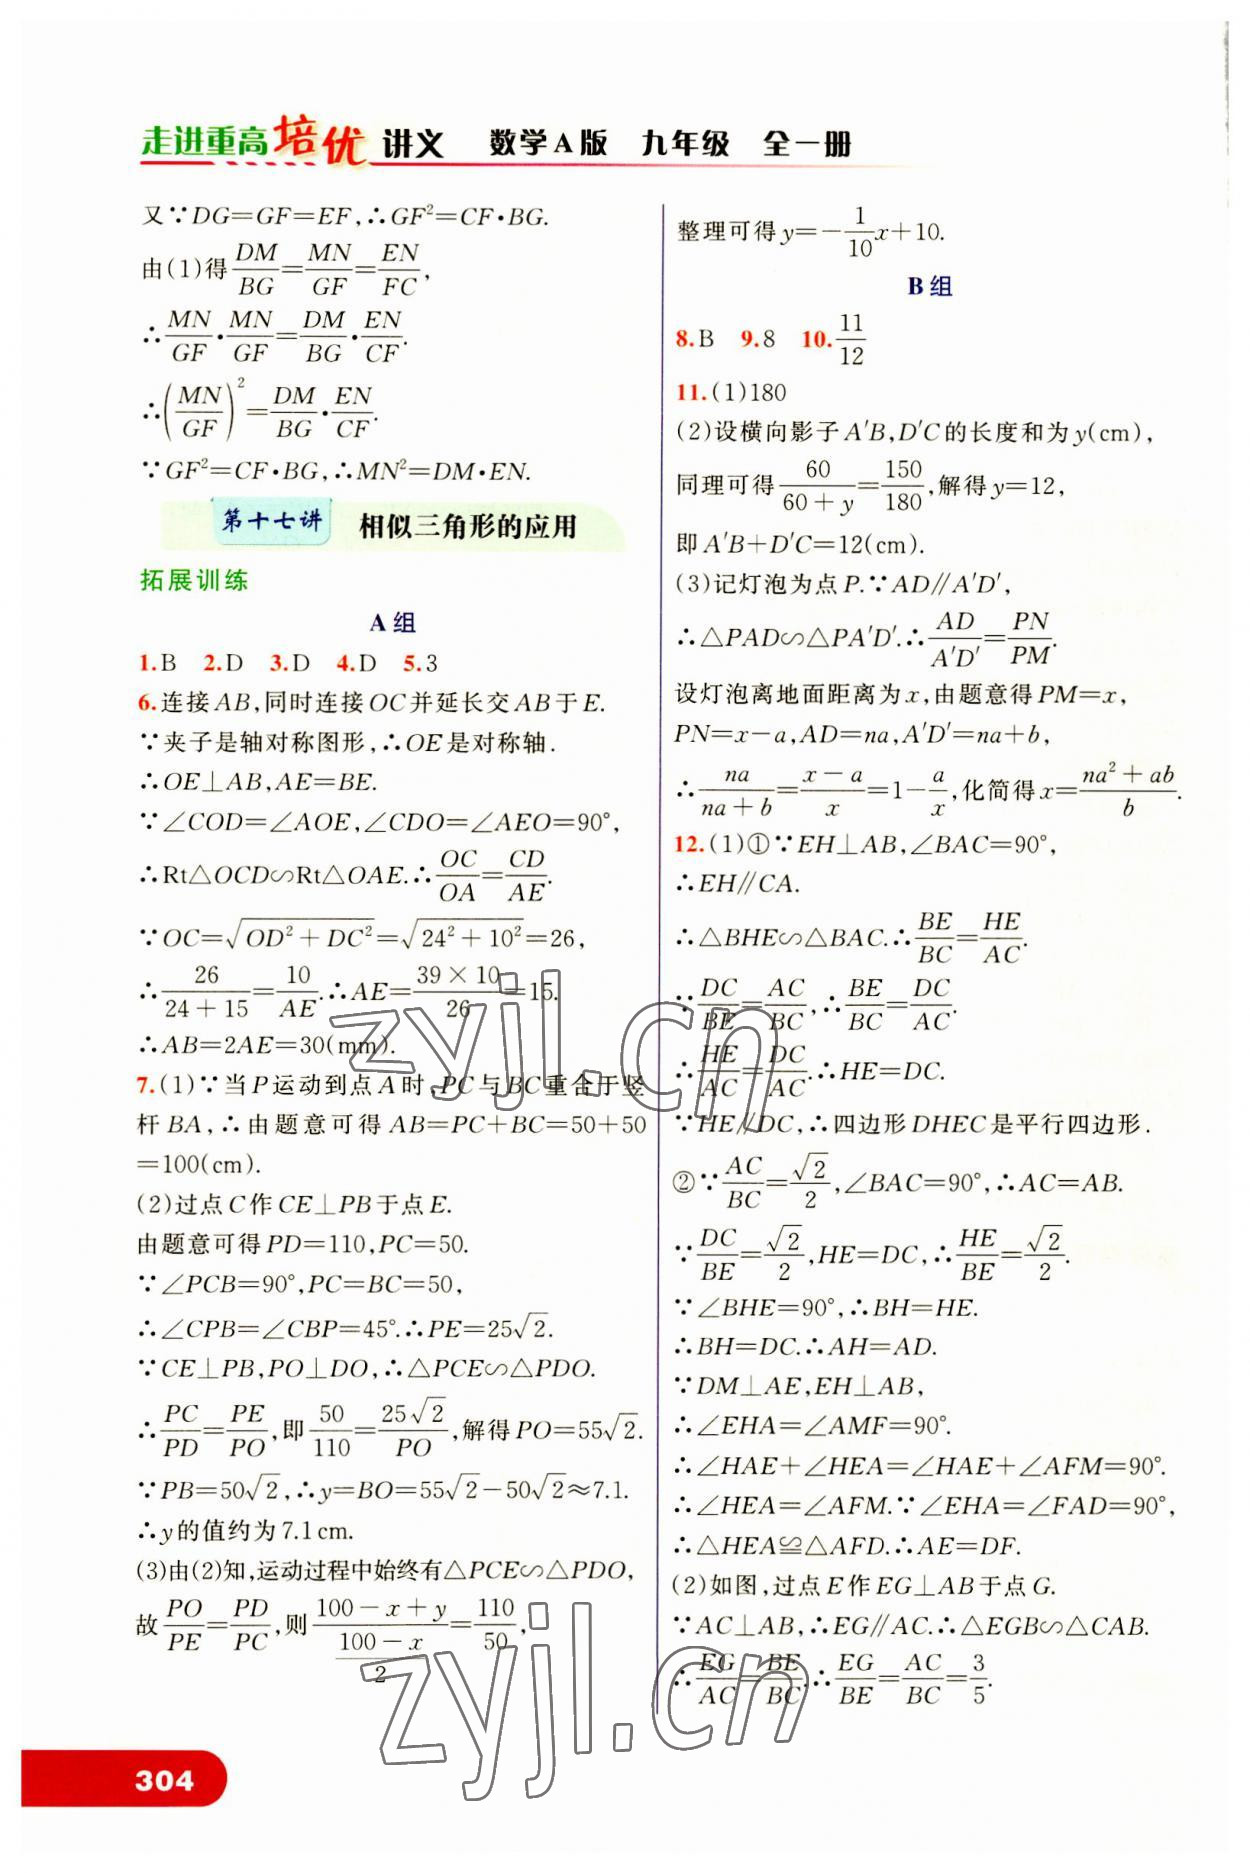 走进重高培优 讲义 数学A版 九年级 全一册
又∵DG=GF=EF,∴GF²=CF·BG.
由(1)得DM/BG=MN/GF=EN/FC,
∴MN/GF·MN/GF=DM/BG·EN/CF.
∴(MN/GF)²=DM/BG·EN/CF.
∵GF²=CF·BG,∴MN²=DM·EN.
第十七讲 相似三角形的应用
拓展训练
A组
1.B 2.D 3.D 4.D 5.3
6.连接AB,同时连接OC并延长交AB于E.
∵夹子是轴对称图形,∴OE是对称轴.
∴OE⊥AB,AE=BE.
∵∠COD=∠AOE,∠CDO=∠AEO=90°,
∴Rt△OCD∽Rt△OAE.∴OC/OA=CD/AE.
∵OC=√(OD²+DC²)=√(24²+10²)=26,
∴26/(24+15)=10/AE.∴AE=(39×10)/26=15.
∴AB=2AE=30(mm).
7.(1)∵当P运动到点A时,PC与BC重合于竖
杆BA,∴由题意可得AB=PC+BC=50+50
=100(cm).
(2)过点C作CE⊥PB于点E.
由题意可得PD=110,PC=50.
∵∠PCB=90°,PC=BC=50,
∴∠CPB=∠CBP=45°.∴PE=25√2.
∵CE⊥PB,PO⊥DO,∴△PCE∽△PDO.
∴PC/PD=PE/PO,即50/110=25√2/PO,解得PO=55√2.
∵PB=50√2,∴y=BO=55√2-50√2≈7.1.
∴y的值约为7.1cm.
(3)由(2)知,运动过程中始终有△PCE∽△PDO,
故PO/PE=PD/PC,则(100-x+y)/((100-x)/2)=110/50,
304
整理可得y=-1/10x+10.
B组
8.B 9.8 10.11/12
11.(1)180
(2)设横向影子A′B,D′C的长度和为y(cm),
同理可得60/(60+y)=150/180,解得y=12,
即A′B+D′C=12(cm).
(3)记灯泡为点P.∵AD∥A′D′,
∴△PAD∽△PA′D′.∴AD/A′D′=PN/PM.
设灯泡离地面距离为x,由题意得PM=x,
PN=x-a,AD=na,A′D′=na+b,
∴na/(na+b)=(x-a)/x=1-a/x,化简得x=(na²+ab)/b.
12.(1)①∵EH⊥AB,∠BAC=90°,
∴EH∥CA.
∴△BHE∽△BAC.∴BE/BC=HE/AC.
∵DC/BE=AC/BC,∴BE/BC=DC/AC.
∴HE/AC=DC/AC.∴HE=DC.
∵HE∥DC,∴四边形DHEC是平行四边形.
②∵AC/BC=√2/2,∠BAC=90°,∴AC=AB.
∵DC/BE=√2/2,HE=DC,∴HE/BE=√2/2.
∵∠BHE=90°,∴BH=HE.
∴BH=DC.∴AH=AD.
∵DM⊥AE,EH⊥AB,
∴∠EHA=∠AMF=90°.
∴∠HAE+∠HEA=∠HAE+∠AFM=90°.
∴∠HEA=∠AFM.∵∠EHA=∠FAD=90°,
∴△HEA≌△AFD.∴AE=DF.
(2)如图,过点E作EG⊥AB于点G.
∵AC⊥AB,∴EG∥AC.∴△EGB∽△CAB.
∴EG/AC=BE/BC.∴EG/BE=AC/BC=3/5.
zyjl.cn
zyjl.cn